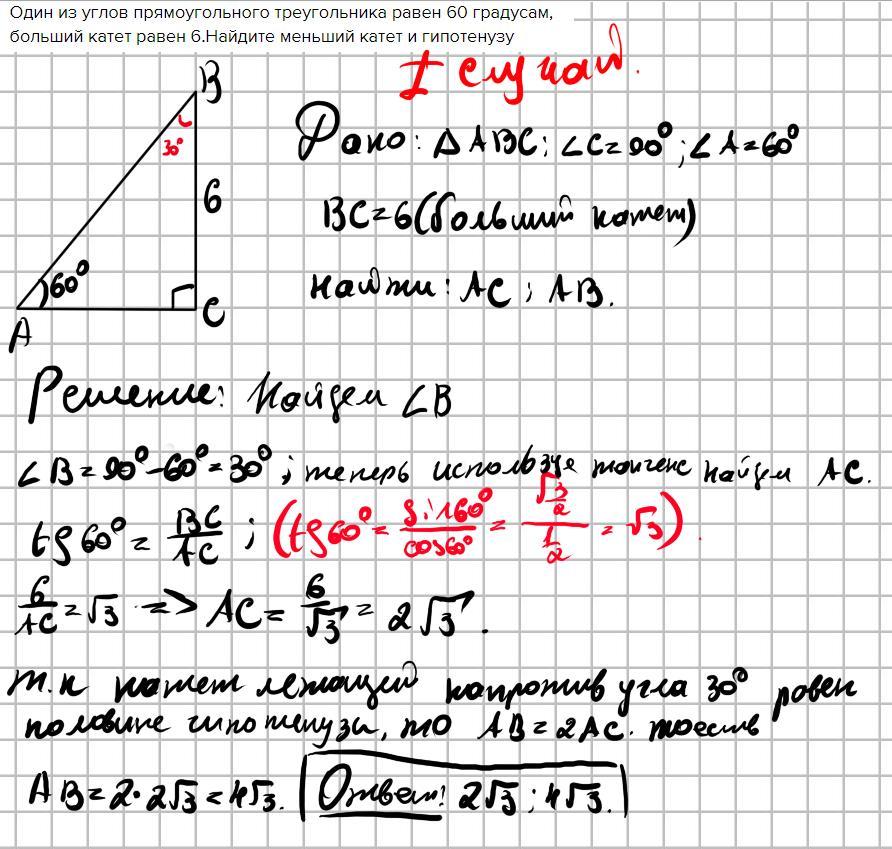 Один из углов прямоугольного треугольника равен 60 градусам,
больший катет равен 6.Найдите меньший катет и гипотенузу
I случай.
B
30°
6
60°
A
C
Дано: ΔABC; ∠C=90°; ∠A=60°
BC=6(больший катет)
Найти: AC; AB.
Решение: Найдем ∠B
∠B=90°-60°=30°; теперь используя тангенс найдем AC.
tg60°=BC/AC; (tg60°=sin60°/cos60°=(√3/2)/(1/2)=√3).
6/AC=√3 => AC=6/√3=2√3.
т.к катет лежащий напротив угла 30° равен
половине гипотенузы, то AB=2AC. тоесть
AB=2·2√3=4√3. Ответ: 2√3; 4√3.